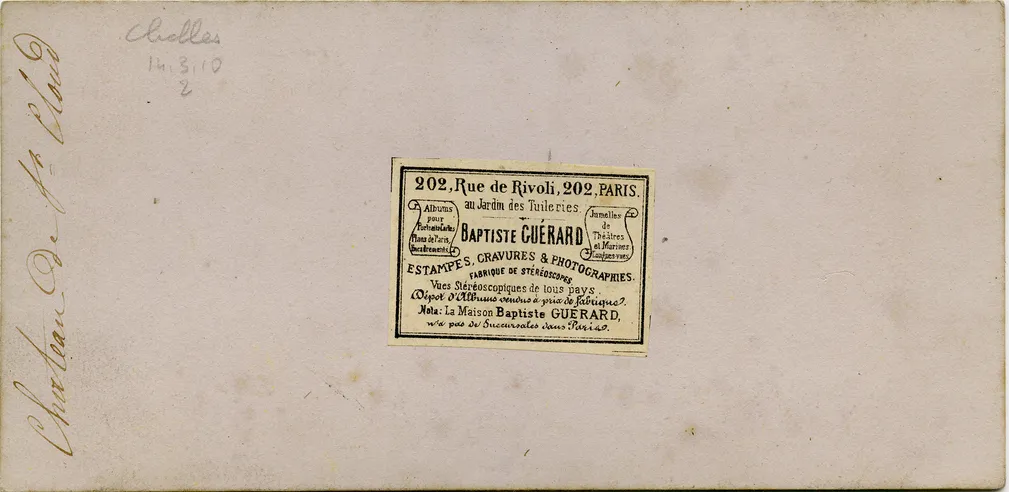 Chateau de St Cloud
Chelles
14.3.10
2
202, Rue de Rivoli, 202, PARIS.
au Jardin des Tuileries
Albums
pour
Portraits Cartes
Plans de Paris,
Encadrements
BAPTISTE GUÉRARD
Jumelles
de
Théâtres
et Marines
Longues-vues
ESTAMPES, GRAVURES & PHOTOGRAPHIES.
FABRIQUE DE STÉRÉOSCOPES
Vues Stéréoscopiques de tous pays.
Dépot d'Albums vendus à prix de fabrique.
Nota: La Maison Baptiste GUÉRARD,
n'a pas de Succursales dans Paris.